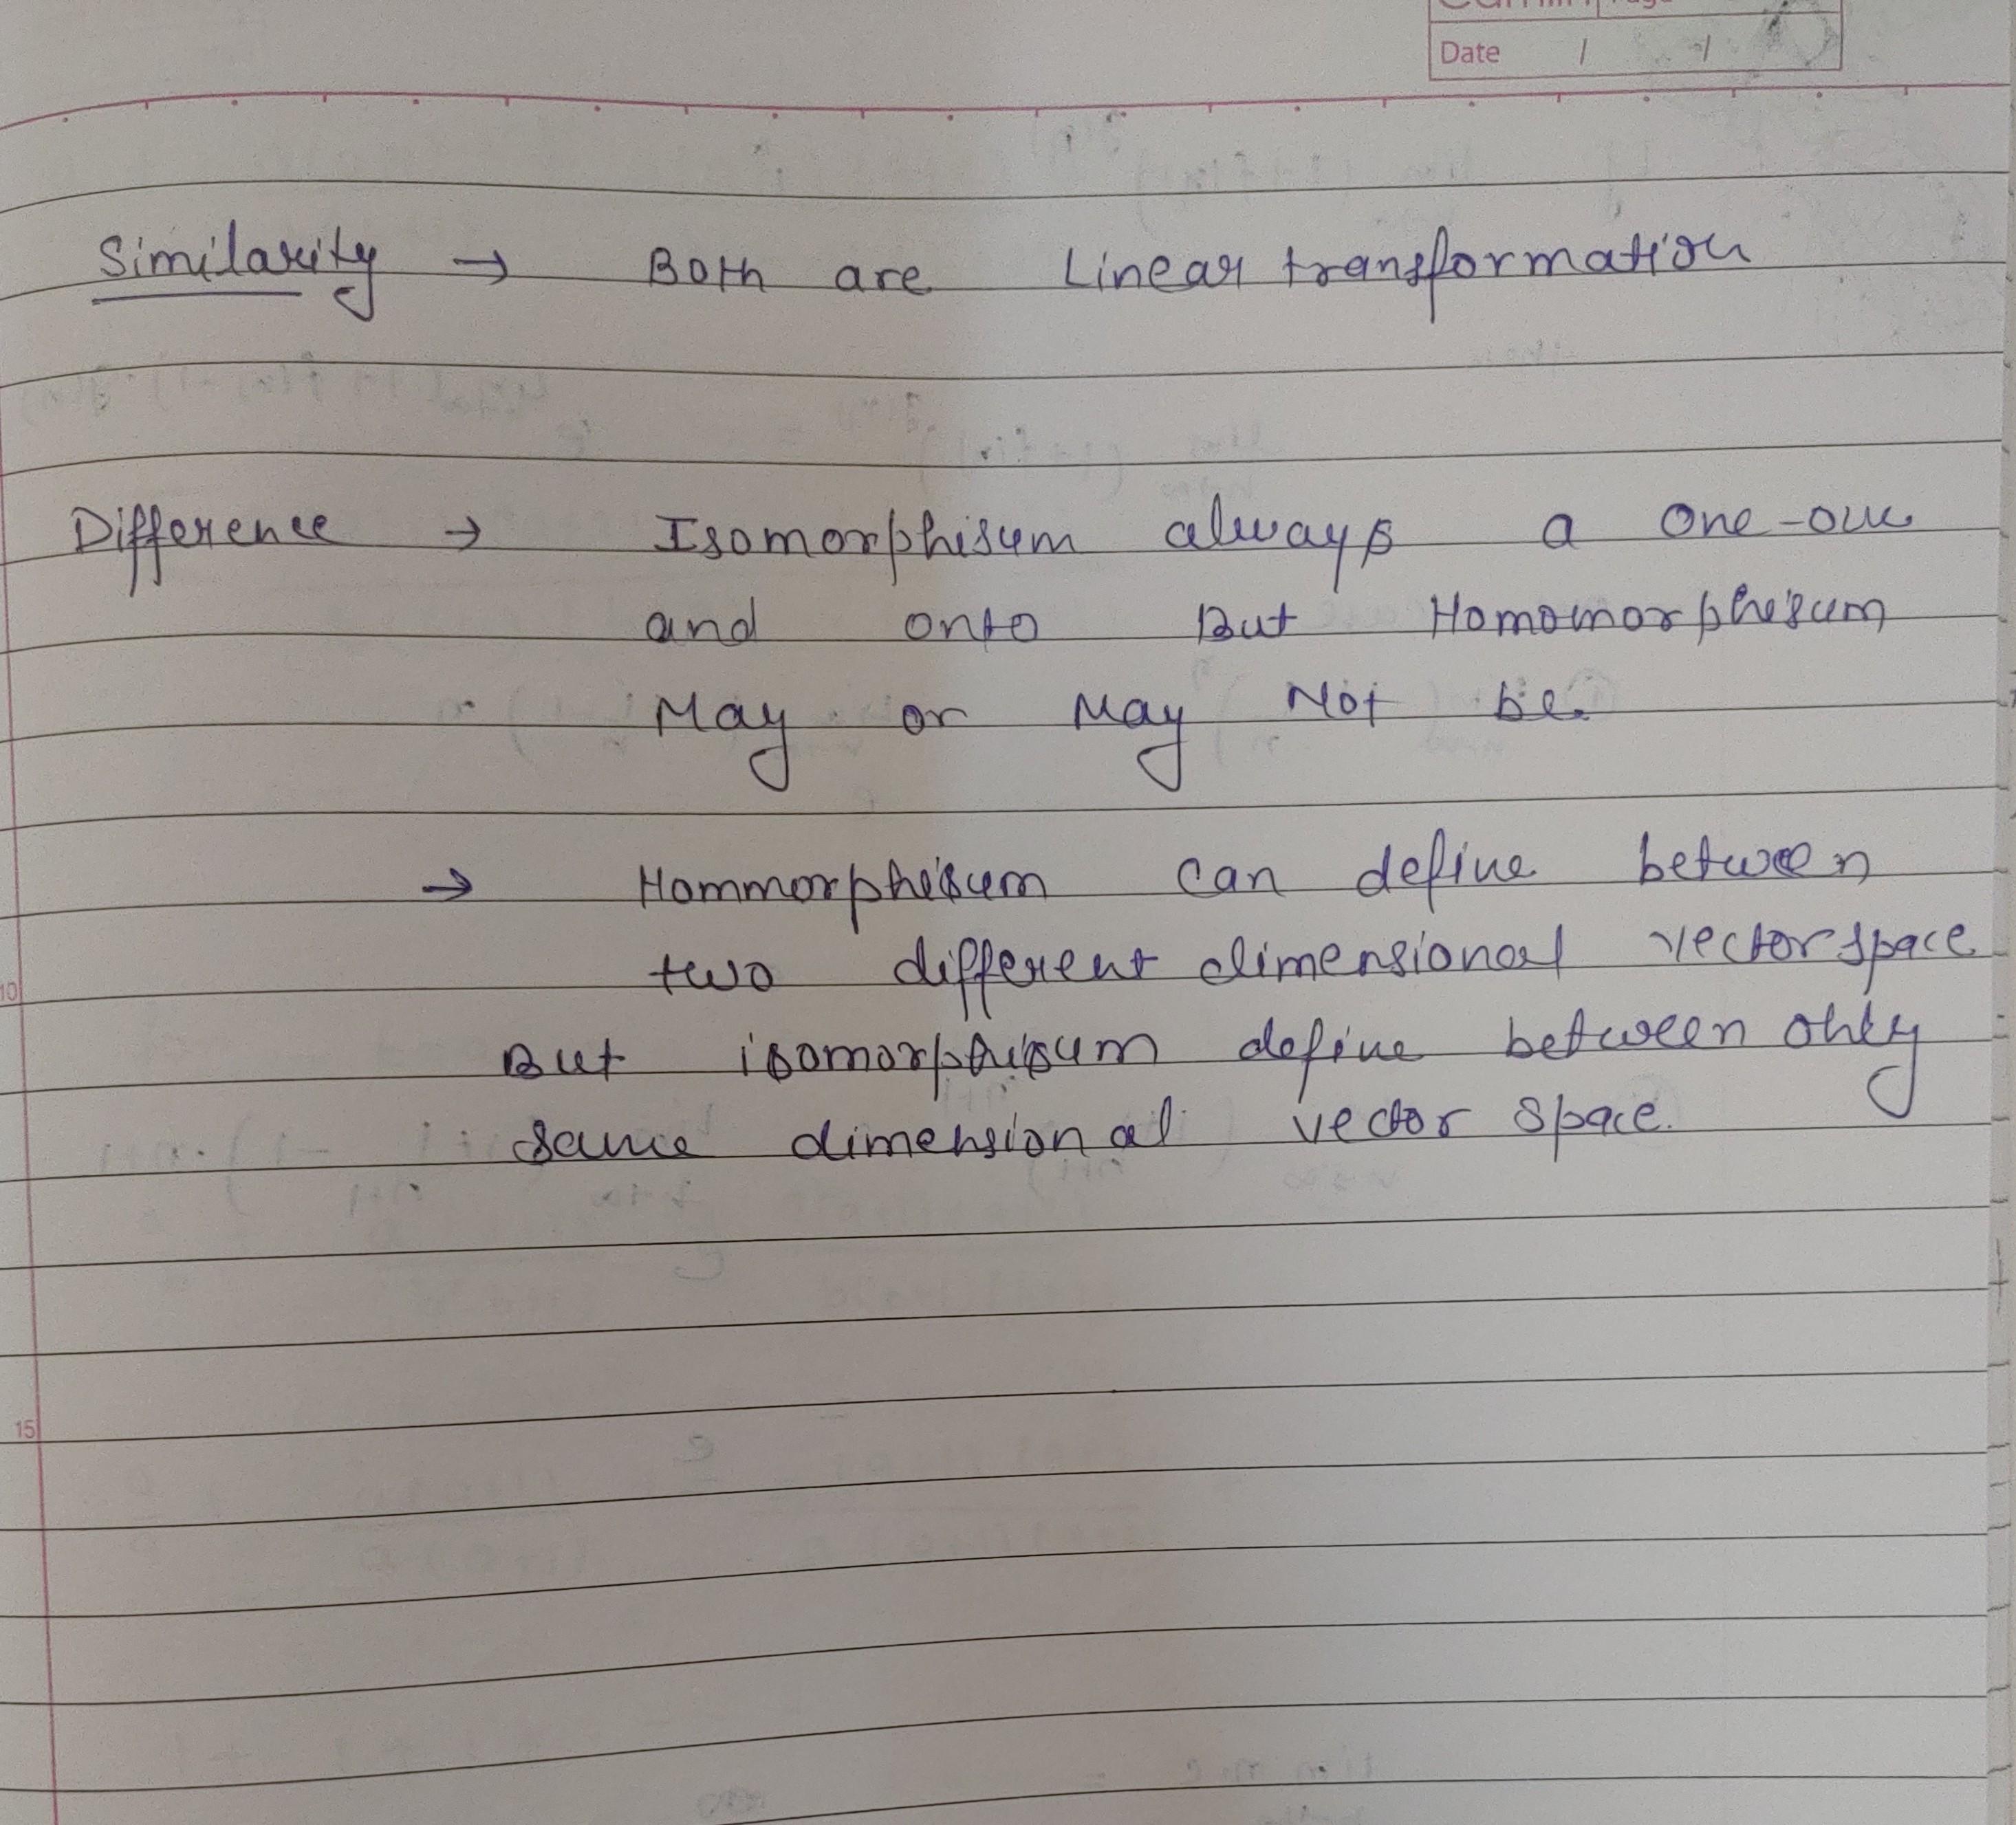 Date / /
Similarity → Both are Linear transformation
Difference → Isomorphisum always a one-one
and onto But Homomorphisum
May or May Not be.
→ Hommorphisum can define between
two different dimensional vector space
But isomorphisum define between only
10
same dimensional vector space.
15